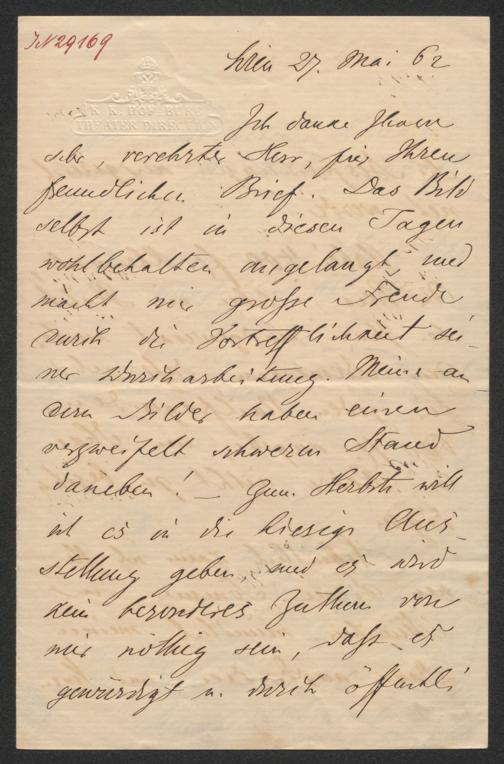 IN 29169
K. K. HOF-BURG
THEATER DIRECTION
Wien 27. Mai 62
Ich danke Ihnen
sehr, verehrter Herr, für Ihren
freundlichen Brief. Das Bild
selbst ist in diesen Tagen
wohlbehalten angelangt, und
macht mir große Freude
durch die Vortrefflichkeit sei-
ner Durcharbeitung. Meine an-
dern Bilder haben einen
verzweifelt schweren Stand
daneben! – Zum Herbste will
ich es in die hiesige Aus-
stellung geben, und es wird
kein besonderes Zuthun von
mir nöthig sein, daß es
gewürdigt u. durch öffentli